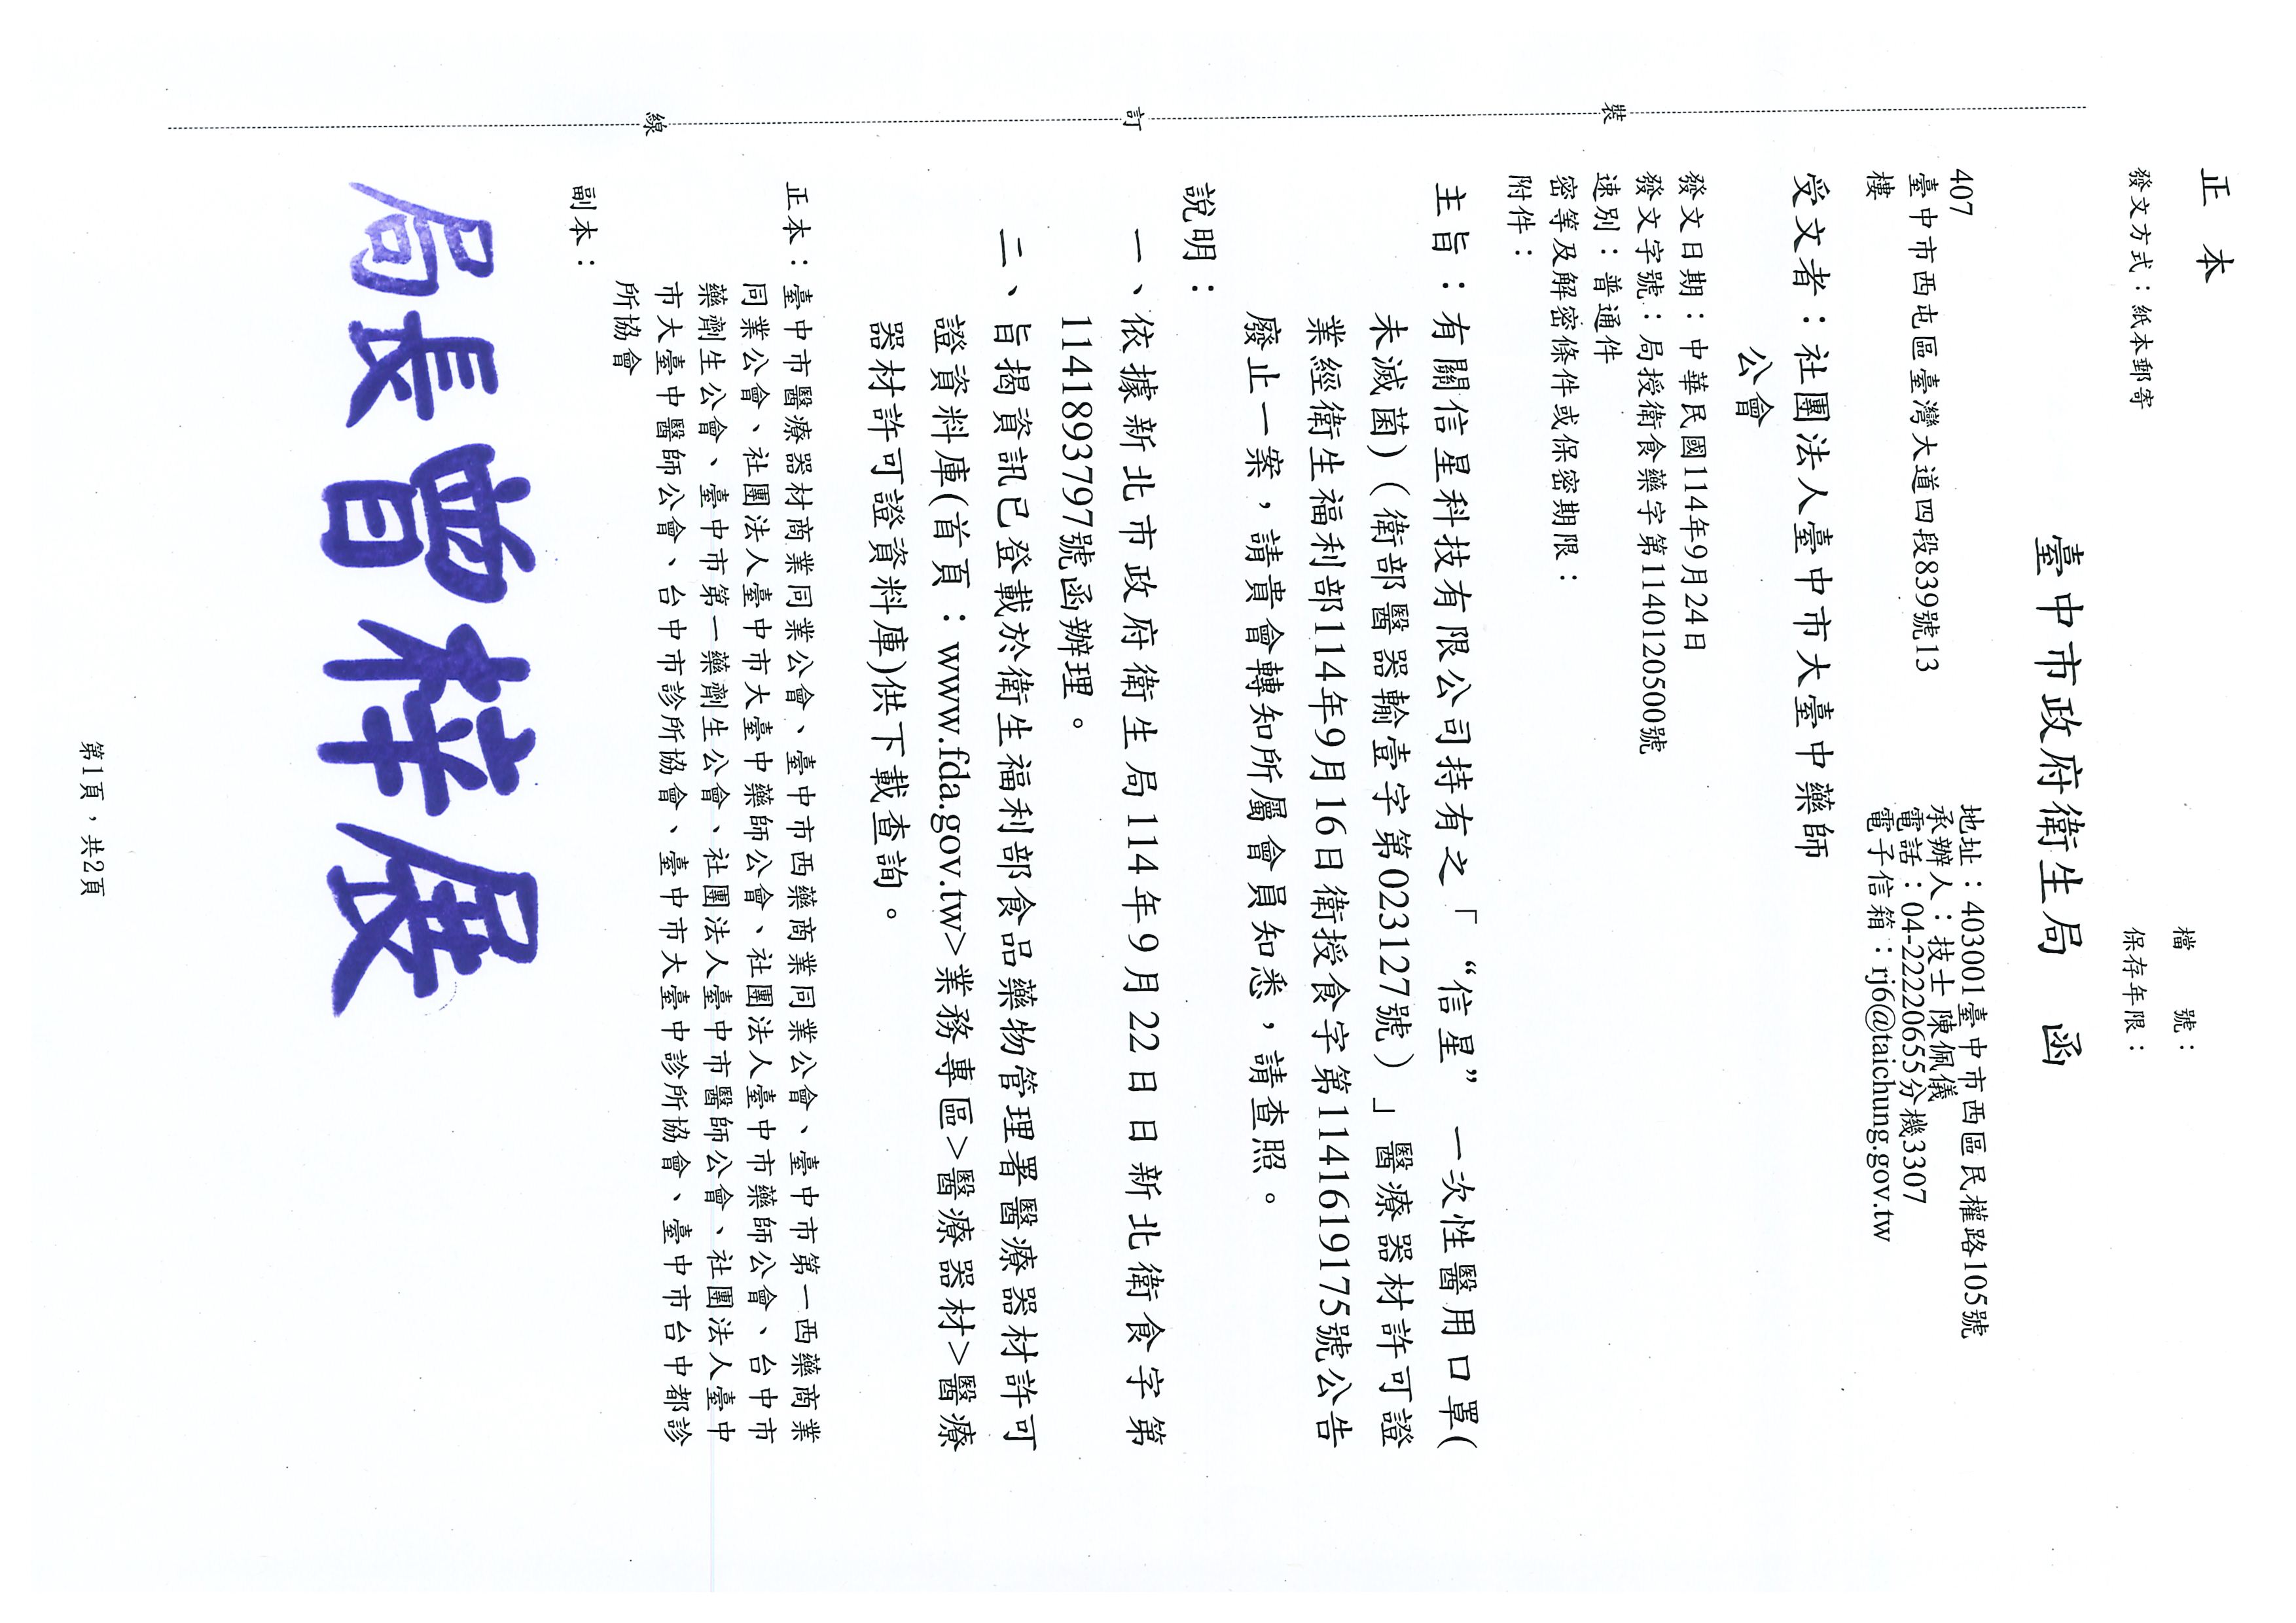 正本
檔　　號：
保存年限：
發文方式：紙本郵寄
臺中市政府衛生局　函
地址：403001臺中市西區民權路105號
承辦人：技士 陳佩儀
電話：04-22220655分機3307
電子信箱：rj6@taichung.gov.tw
407
臺中市西屯區臺灣大道四段839號13
樓
受文者：社團法人臺中市大臺中藥師
公會
發文日期：中華民國114年9月24日
發文字號：局授衛食藥字第1140120500號
速別：普通件
密等及解密條件或保密期限：
附件：
主旨：有關信星科技有限公司持有之「“信星”一次性醫用口罩(
未滅菌)（衛部醫器輸壹字第023127號）」醫療器材許可證
業經衛生福利部114年9月16日衛授食字第1141619175號公告
廢止一案，請貴會轉知所屬會員知悉，請查照。
說明：
一、依據新北市政府衛生局114年9月22日日新北衛食字第
1141893797號函辦理。
二、旨揭資訊已登載於衛生福利部食品藥物管理署醫療器材許可
證資料庫(首頁：www.fda.gov.tw>業務專區>醫療器材>醫療
器材許可證資料庫)供下載查詢。
正本：臺中市醫療器材商業同業公會、臺中市西藥商業同業公會、臺中市第一西藥商業
同業公會、社團法人臺中市大臺中藥師公會、社團法人臺中市藥師公會、台中市
藥劑生公會、臺中市第一藥劑生公會、社團法人臺中市醫師公會、社團法人臺中
市大臺中醫師公會、台中市診所協會、臺中市大臺中診所協會、臺中市台中都診
所協會
副本：
局長曾梓展
裝
訂
線
第1頁，共2頁